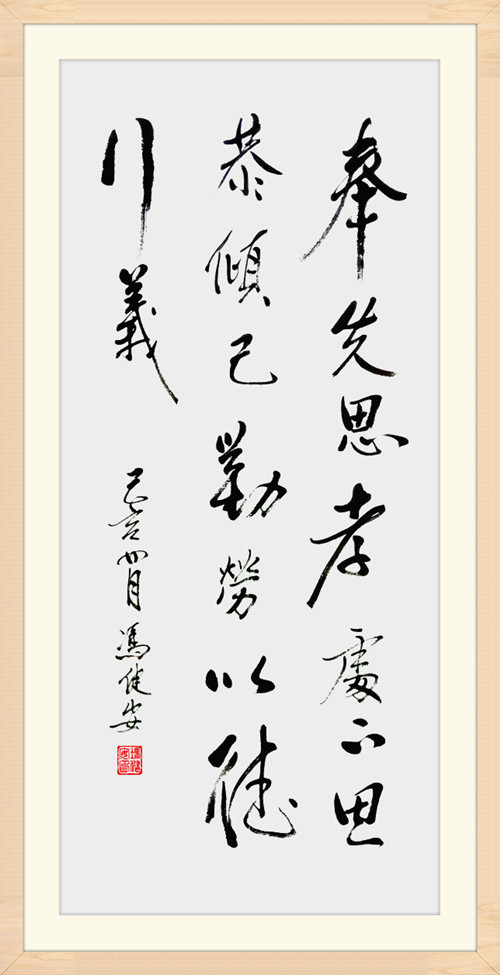 奉先思孝處下思
恭傾己勤勞以德
行義
己亥四月馮健安